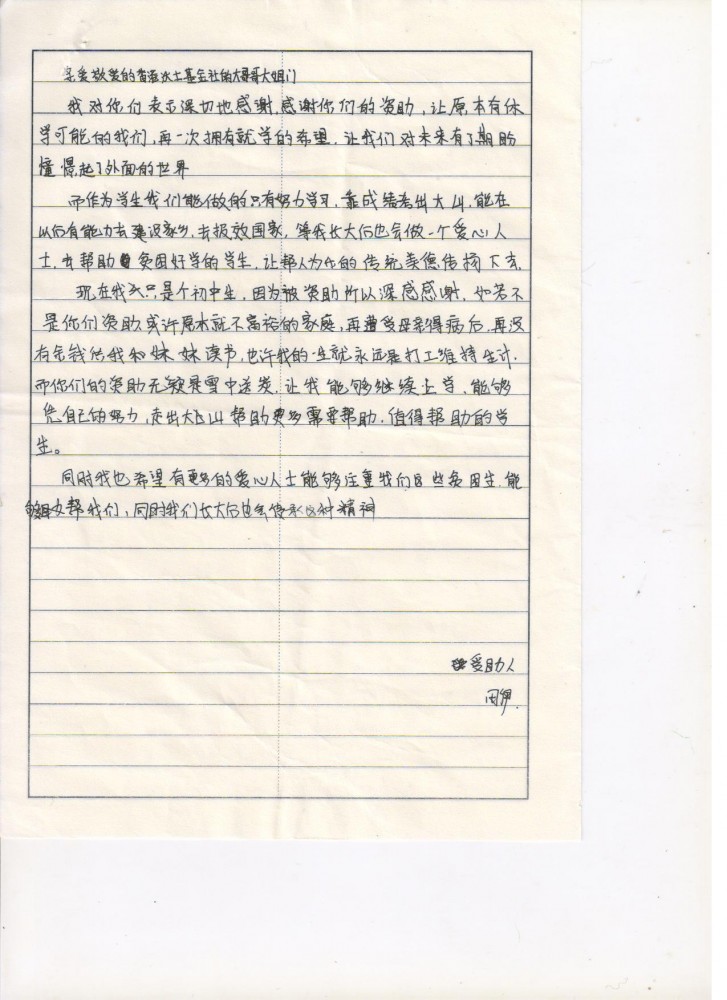 亲爱敬爱的香港沃土基金社的大哥哥大姐们
我对你们表示深切地感谢,感谢你们的资助,让原本有休
学可能的我们,再一次拥有就学的希望,让我们对未来有了期盼
憧憬起了外面的世界
而作为学生我们能做的只有努力学习,靠成绩考出大山,能在
以后有能力去建设家乡,去报效国家,等我长大后也会做一个爱心人
士,去帮助贫困好学的学生,让帮人为乐的传统美德传扬下去.
现在我只是个初中生,因为被资助所以深感感谢,如若不
是你们资助或许原本就不富裕的家庭,再遭受母亲得病后,再没
有余钱供我和妹妹读书,也许我的一生就永远是打工维持生计.
而你们的资助无疑是雪中送炭,让我能够继续上学,能够
凭自己的努力,走出大山帮助更多需要帮助,值得帮助的学
生。
同时我也希望有更多的爱心人士能够注重我们这些贫困生,能
帮我们,同时我们长大后也会传承这种精神
受助人
田伊.